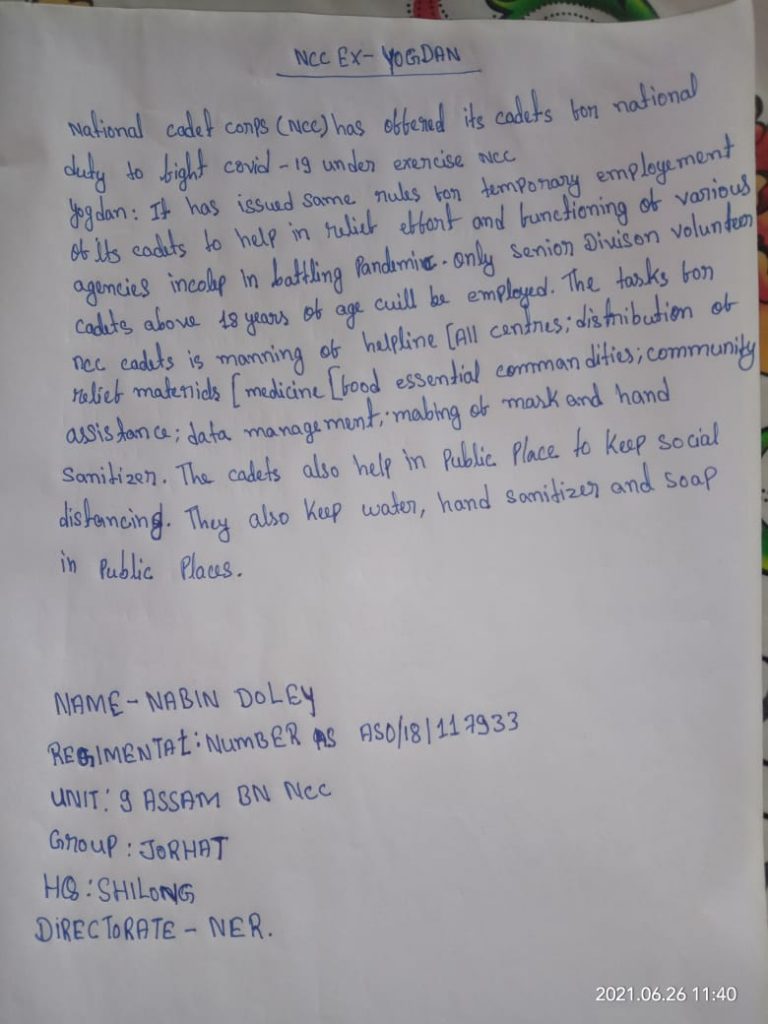 NCC EX- YOGDAN
National cadet corps (NCC) has offered its cadets for national
duty to fight covid-19 under exercise NCC
Yogdan: It has issued same rules for temporary employement
of its cadets to help in relief effort and functioning of various
agencies incolep in battling Pandemic. only senior Divison volunteer
cadets above 18 years of age cuill be employed. The tasks for
ncc cadets is manning of helpline [All centres; distribution of
relief materids [medicine [food essential commandities; community
assistance; data management; making of mask and hand
sanitizer. The cadets also help in Public Place to keep social
distancing. They also keep water, hand sanitizer and soap
in Public Places.
NAME-NABIN DOLEY
REGIMENTAL: NUMBER AS ASO/18/117933
UNIT: 9 ASSAM BN NCC
Group: JORHAT
HQ: SHILONG
DIRECTORATE - NER.
2021.06.26 11:40